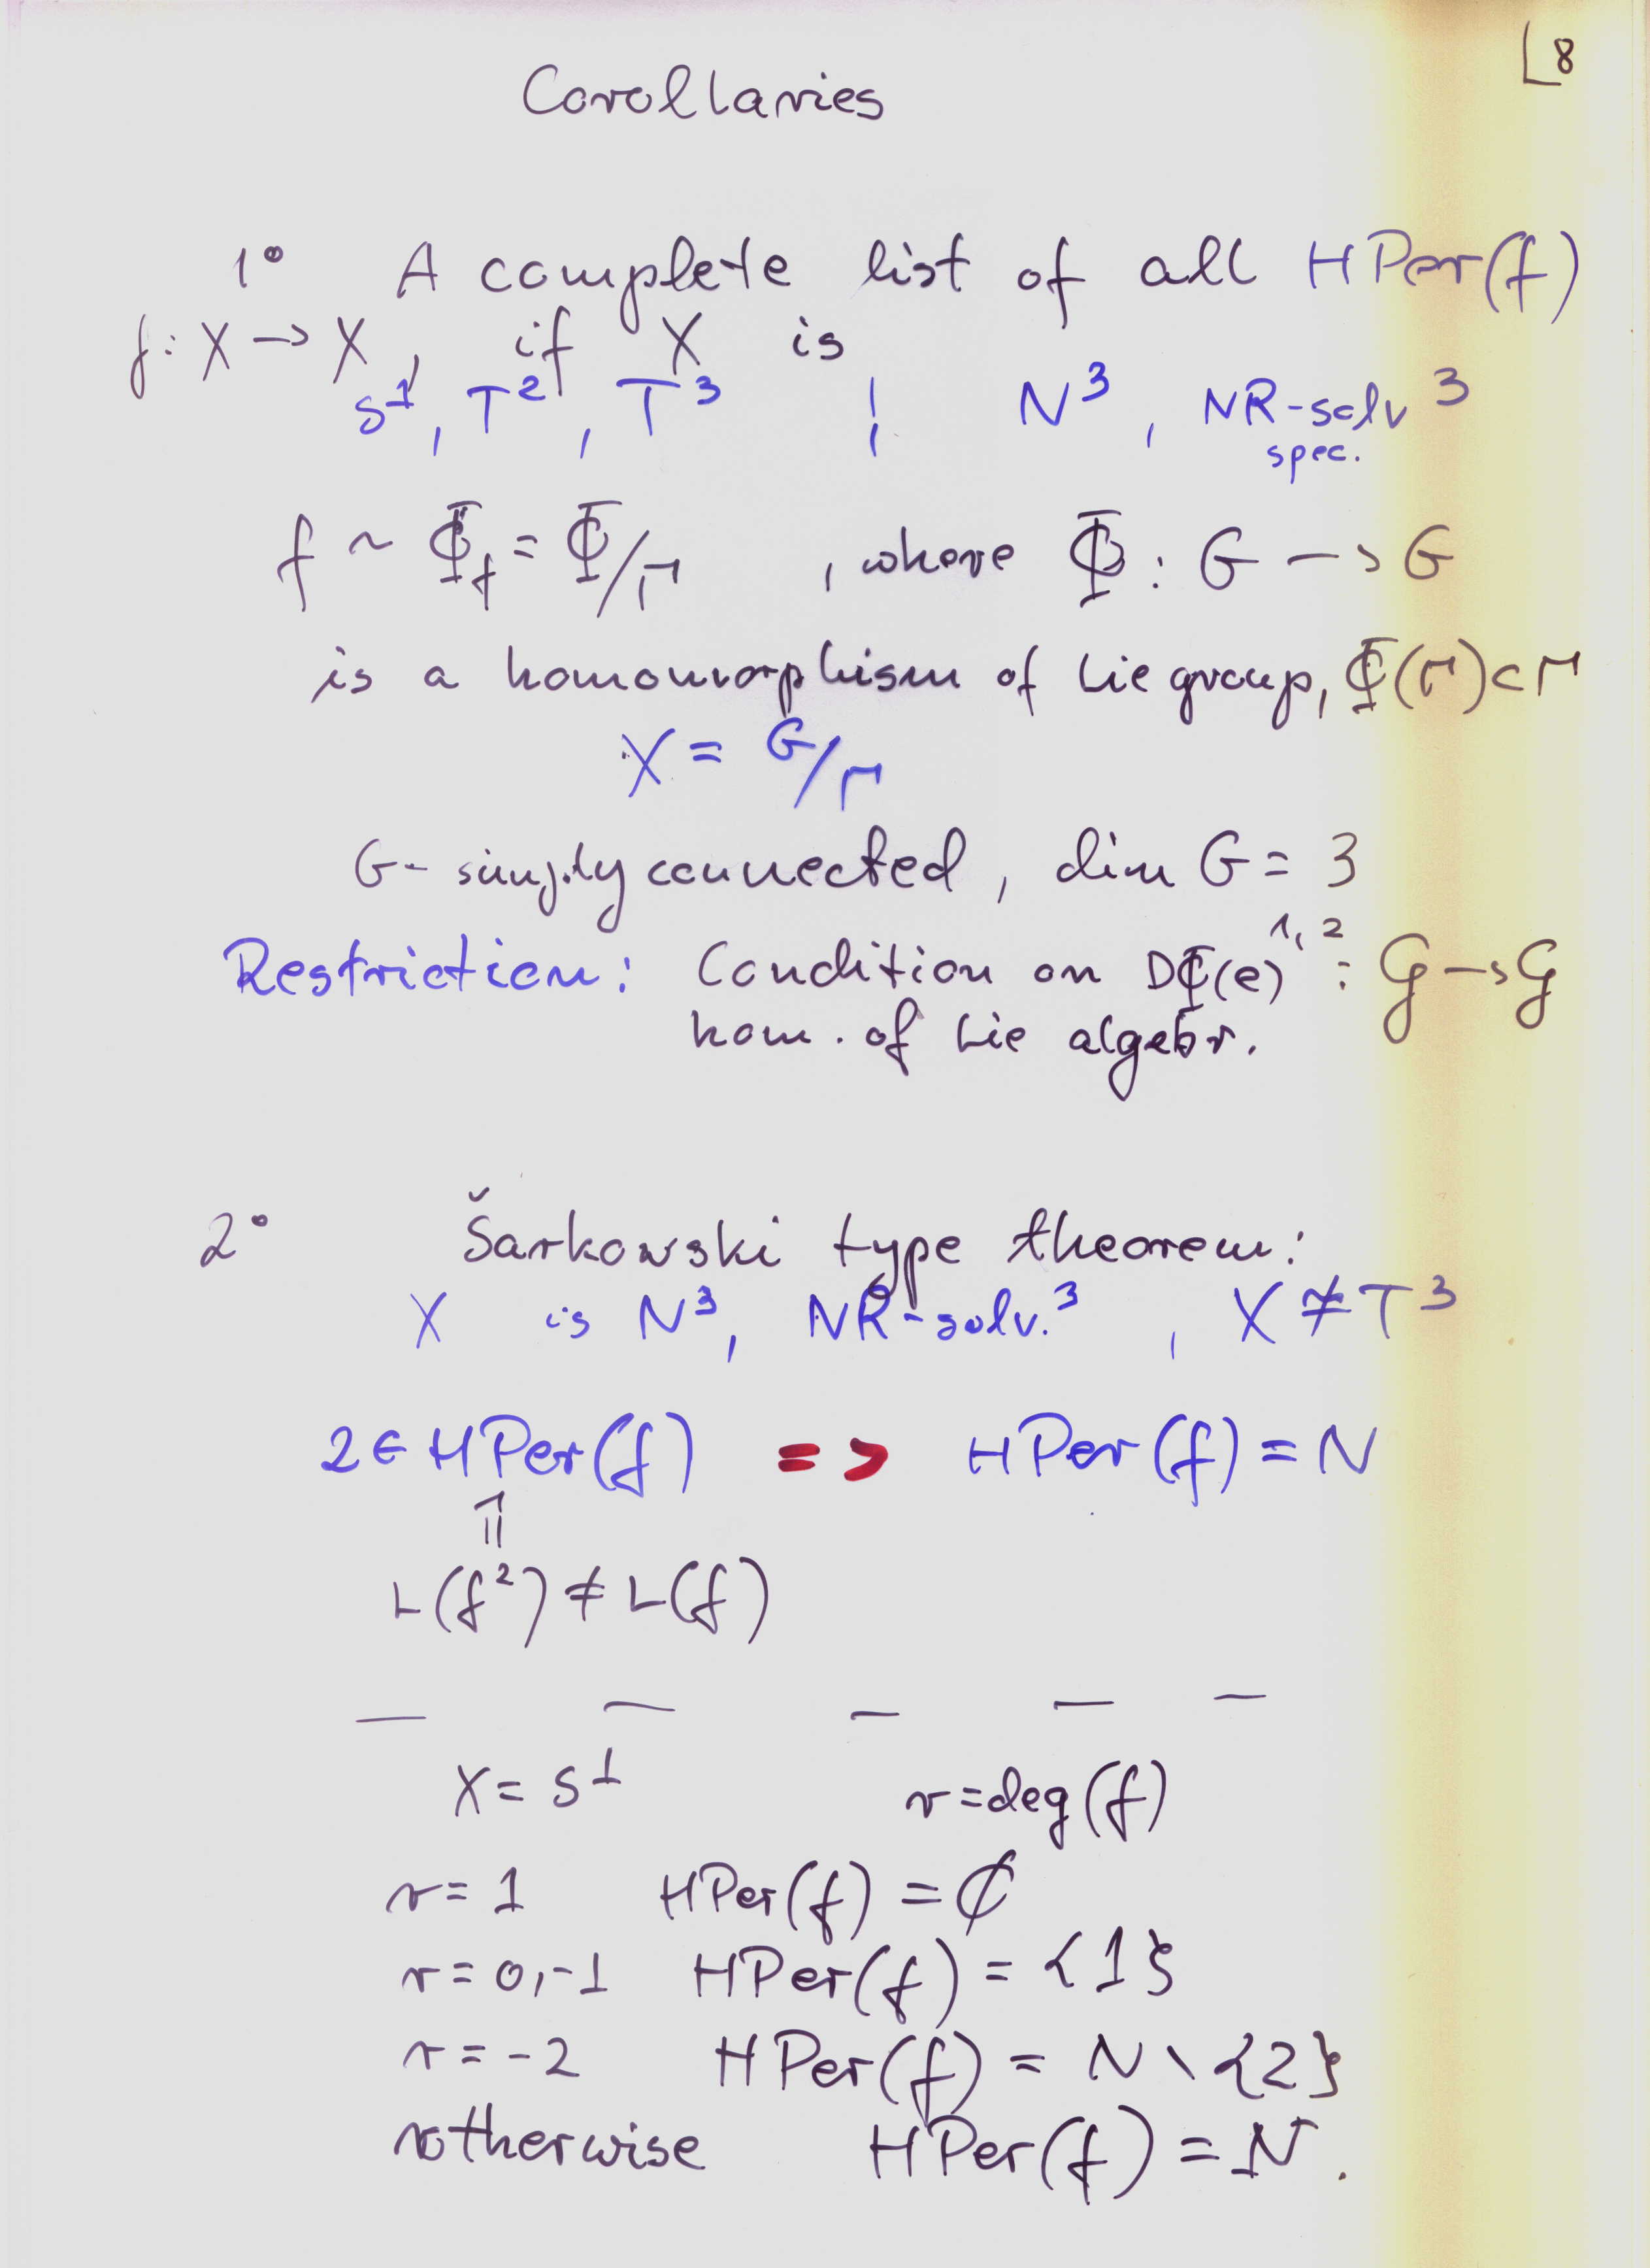 8
Corollaries
1° A complete list of all HPer(f)
f: X → X, if X is
S¹, T², T³ ! N³, NR-solv³
spec.
f ~ Φ_f = Φ/Γ , where Φ: G → G
is a homomorphism of Lie group, Φ(Γ)⊂Γ
X = G/Γ
G- simply connected, dim G = 3
Restriction: Condition on DΦ(e)^{1,2} : 𝒢 → 𝒢
hom. of Lie algebr.
2° Šarkowski type theorem:
X is N³, NR-solv.³, X ≠ T³
2 ∈ HPer(f) => HPer(f) = N
⇑
L(f²) ≠ L(f)
— — — — —
X = S¹ r = deg(f)
r = 1 HPer(f) = ∅
r = 0,-1 HPer(f) = {1}
r = -2 HPer(f) = N \ {2}
r otherwise HPer(f) = N.